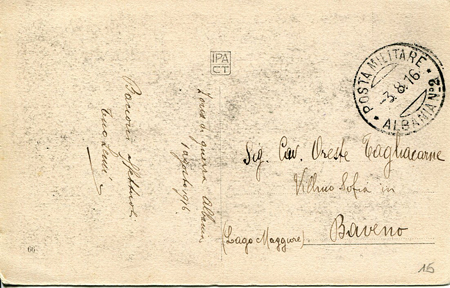 IPA
CT
POSTA MILITARE
-3.8.16
ALBANIA Nº2
Zona di guerra Albania
1 agosto 916
Bacioni affettuosi
Sig. Cav. Oreste Tagliacarne
Villino Sofia in
Baveno
(Lago Maggiore)
66
16